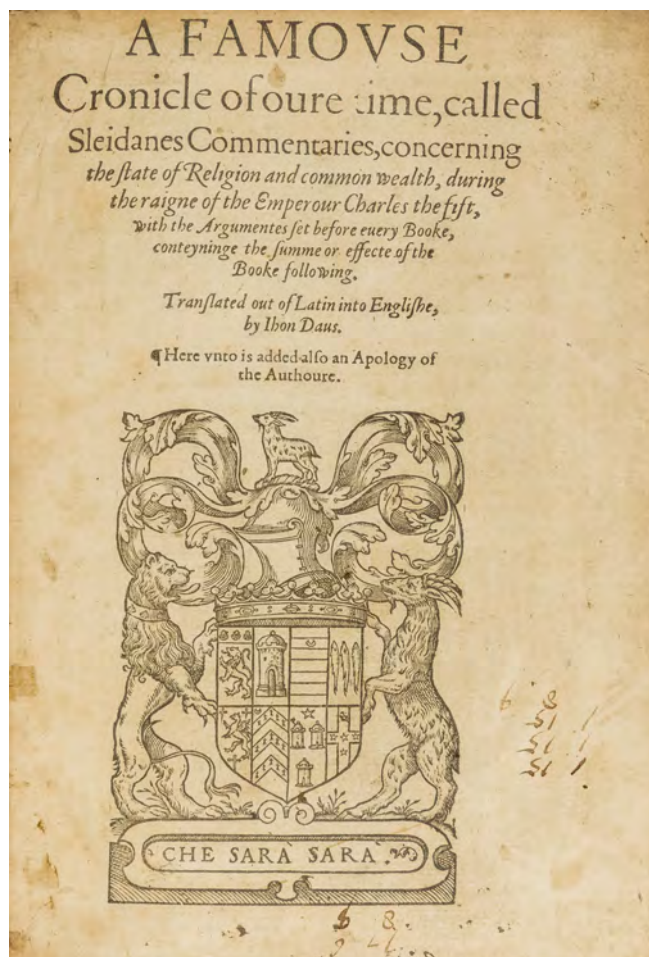 A FAMOVSE
Cronicle of oure time, called
Sleidanes Commentaries, concerning
the ſtate of Religion and common wealth, during
the raigne of the Emperour Charles the fift,
with the Argumentes ſet before euery Booke,
conteyninge the ſumme or effecte of the
Booke following.
Tranſlated out of Latin into Engliſhe,
by Ihon Daus.
¶ Here vnto is added alſo an Apology of
the Authoure.
CHE SARA SARA.